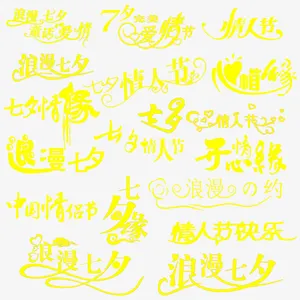 浪漫七夕
童话爱情
7夕
宝宝
爱情节
情人节
浪漫七夕
七夕情人节
心相缘
七夕情缘
七夕
情人节
浪漫七夕
七夕情人节
手心缘
中国情侣节
七夕缘
浪漫の约
情人节快乐
浪漫七夕
浪漫七夕